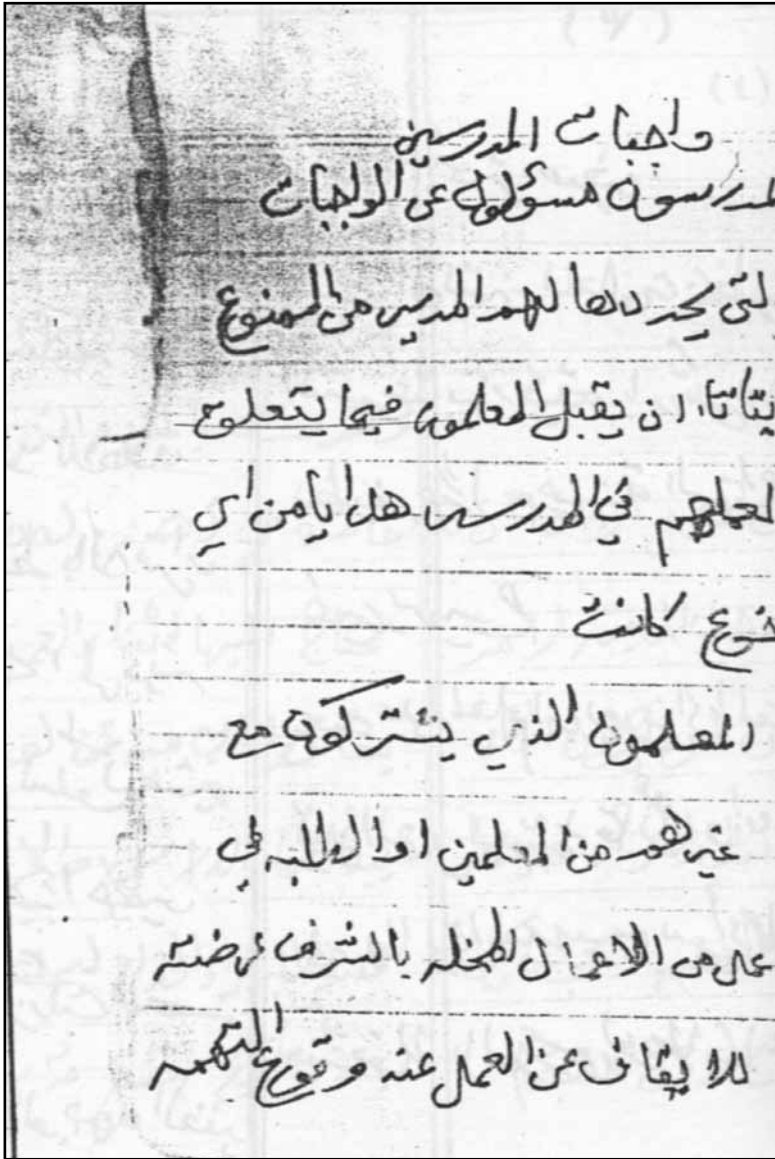 واجبات المدرسين
لمدرسون مسؤلون عن الواجبات
لتي يحددها لهم المدير من الممنوع
ان يقبل المعلمون فيما يتعلق
لعملهم في المدرسه هدايا من اي
نوع كانت
المعلمون الذي يشتركون مع
غيرهم من المعلمين او الطلبه في
عمل من الاعمال المخله بالشرف عرضته
للايقاف عن العمل عند وقوع التهمه